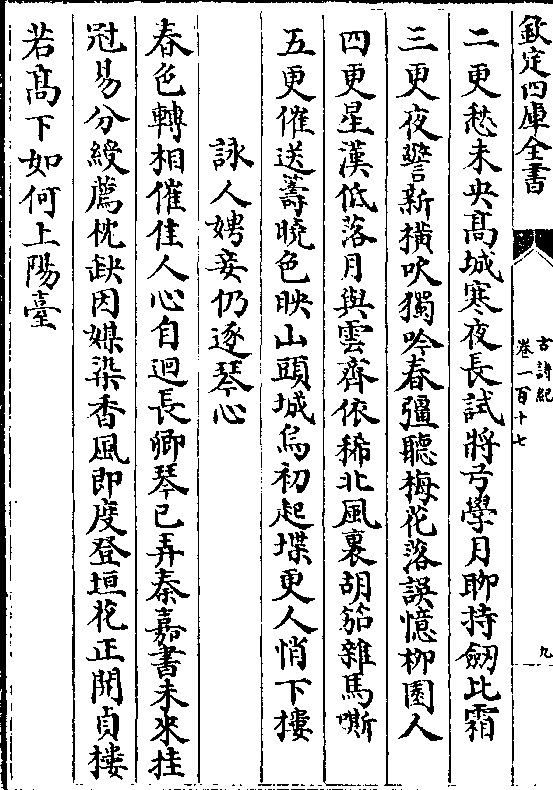 欽定四庫全書
古詩紀
卷一百十七
九
二更愁未央髙城寒夜長試將弓學月聊持劒比霜
三更夜警新横吹獨吟春彊聽梅花落誤憶柳園人
四更星漢低落月與雲齊依稀北風裏胡笳雜馬嘶
五更催送籌曉色映山頭城烏初起堞更人悄下樓
詠人娉妾仍逐琴心
春色轉相催佳人心自迴長卿琴已弄秦嘉書未來挂
冠易分綬薦枕缺因媒染香風即度登垣花正開貞樓
若髙下如何上陽臺